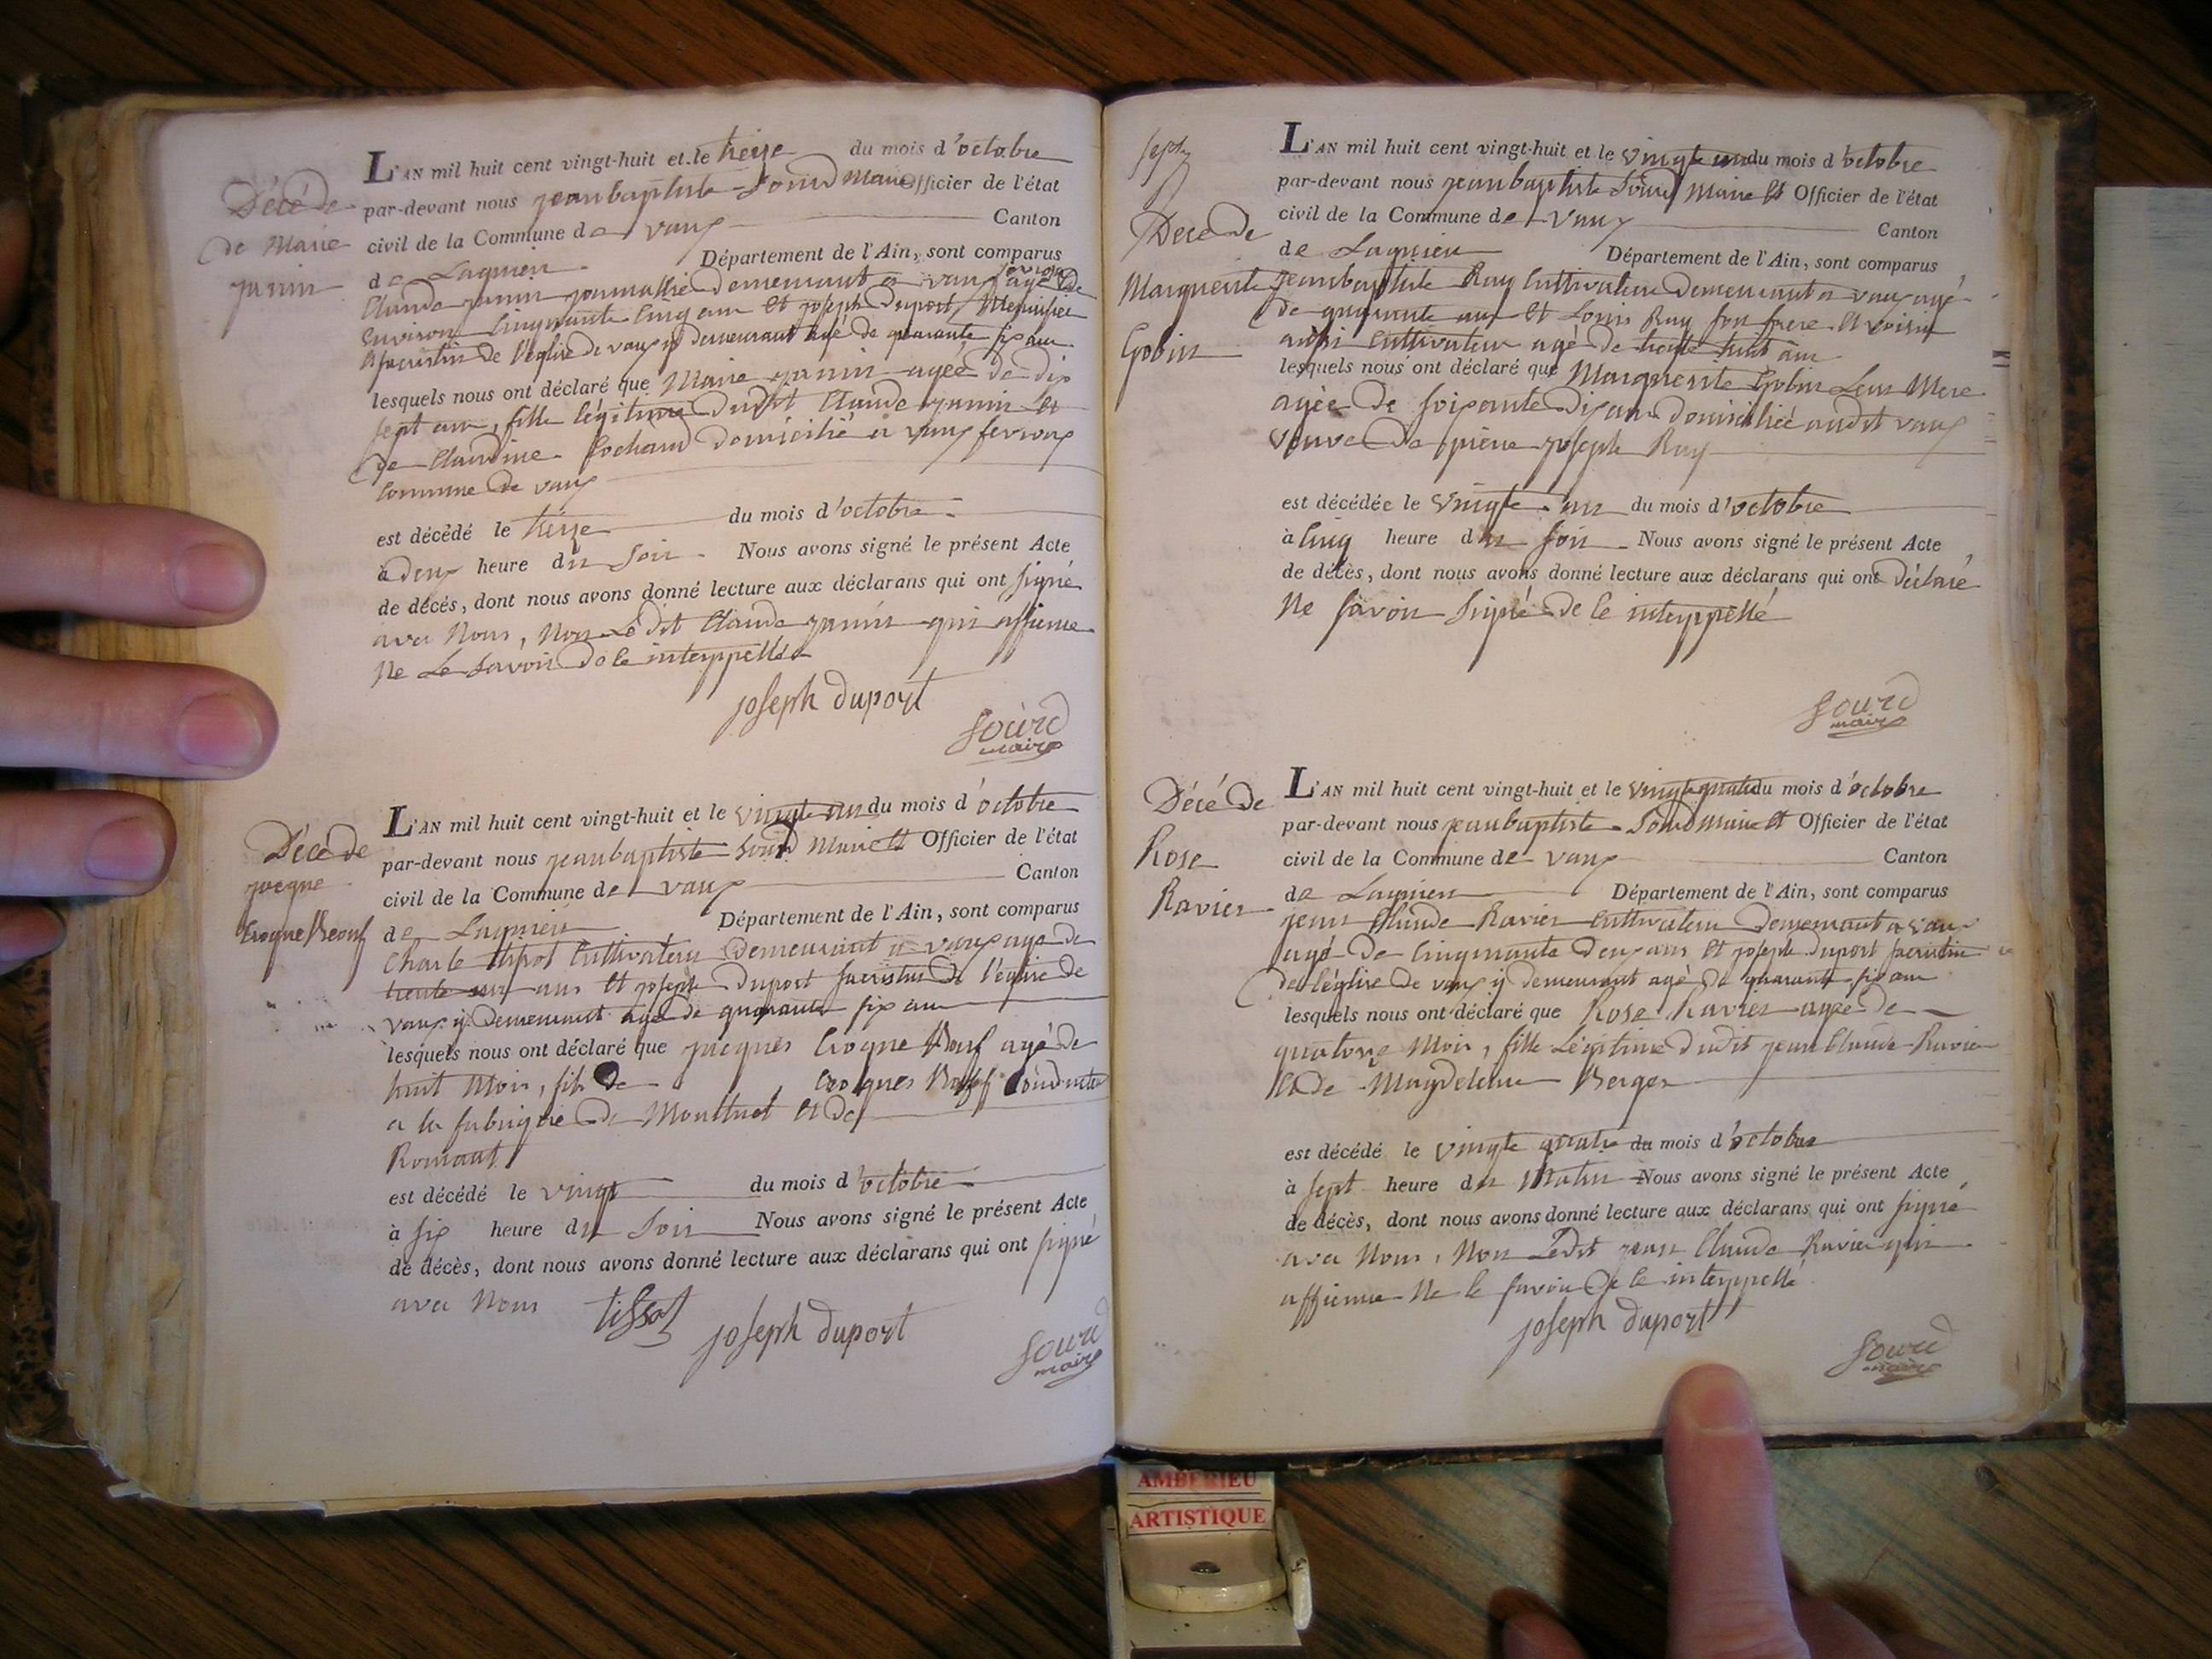 Décé de
de Marie
janin
L'AN mil huit cent vingt-huit et le treize du mois d'octobre
par-devant nous jeanbaptiste Sourd Maire Officier de l'état
civil de la Commune de vaux Canton
de Lagnieu Département de l'Ain, sont comparus
Claude janin journallié demeurant a vaux fevroux agé de
environ Cinquante Cinq ans et joseph Duport Menuisier
sacristin de l'église de vaux y demeurant agé de quarante six ans
lesquels nous ont déclaré que Marie janin agée de dix
sept ans, fille légitime dudit Claude janin et
de Claudine Cochand domicilié a vaux fevroux
Commune de vaux
est décédé le treize du mois d'octobre
à deux heure du Soir Nous avons signé le présent Acte
de décès, dont nous avons donné lecture aux déclarans qui ont signé
avec Nous, Non Le dit Claude janin qui affirme
Ne Le Savoir de le interppellé
joseph duport
Sourd
maire
Décé de
jacque
Croque Beouf
L'AN mil huit cent vingt-huit et le vingte un du mois d'octobre
par-devant nous jeanbaptiste Sourd Maire et Officier de l'état
civil de la Commune de vaux Canton
de Lagnieu Département de l'Ain, sont comparus
Charle Cultivateur demeurant a vaux age de
trente ans et joseph Duport sacristin de l'église de
vaux y demeurant agé de quarante six ans
lesquels nous ont déclaré que jacques Croque Bouf agé de
huit Mois, fils de Croques Bouf Conducteur
a la fabrique de Montluel et de
Romant
est décédé le vingt du mois d'octobre
à six heure du Soir Nous avons signé le présent Acte
de décès, dont nous avons donné lecture aux déclarans qui ont signé
avec Nous
tissot
joseph duport
Sourd
maire
Sept
Decé de
Marguerite
Gobin
L'AN mil huit cent vingt-huit et le vingte un du mois d'octobre
par-devant nous jeanbaptiste Sourd Maire et Officier de l'état
civil de la Commune de vaux Canton
de Lagnieu Département de l'Ain, sont comparus
jeanbaptiste Ray Cultivateur demeurant a vaux agé
de quarante ans et Louis Ray son frere et voisin
aussi Cultivateur agé de trente huit ans
lesquels nous ont déclaré que Marguerite Gobin Leur Mere
agée de soixante dix ans domiciliée audit vaux
veuve de pierre joseph Ray
est décédée le vingte un du mois d'octobre
à Cinq heure du soir Nous avons signé le présent Acte
de décès, dont nous avons donné lecture aux déclarans qui ont déclaré
Ne savoir signé de le interppellé
Sourd
maire
Décé de
Rose
Ravier
L'AN mil huit cent vingt-huit et le vingtequatre du mois d'octobre
par-devant nous jeanbaptiste Sourd Maire et Officier de l'état
civil de la Commune de vaux Canton
de Lagnieu Département de l'Ain, sont comparus
jean Claude Ravier Cultivateur demeurant a vaux
agé de Cinquante deux ans et joseph duport sacristin
de l'église de vaux y demeurant agé de quarante six ans
lesquels nous ont déclaré que Rose Ravier agée de
quatorze Mois, fille Légitime dudit jean Claude Ravier
et de Magdeleine Berger
est décédé le vingte quatre du mois d'octobre
à sept heure du Matin Nous avons signé le présent Acte
de décès, dont nous avons donné lecture aux déclarans qui ont signé
avec Nous, Non Ledit jean Claude Ravier qui
affirme Ne le savoir de le interppellé
joseph duport
Sourd
maire
AMBERIEU
ARTISTIQUE